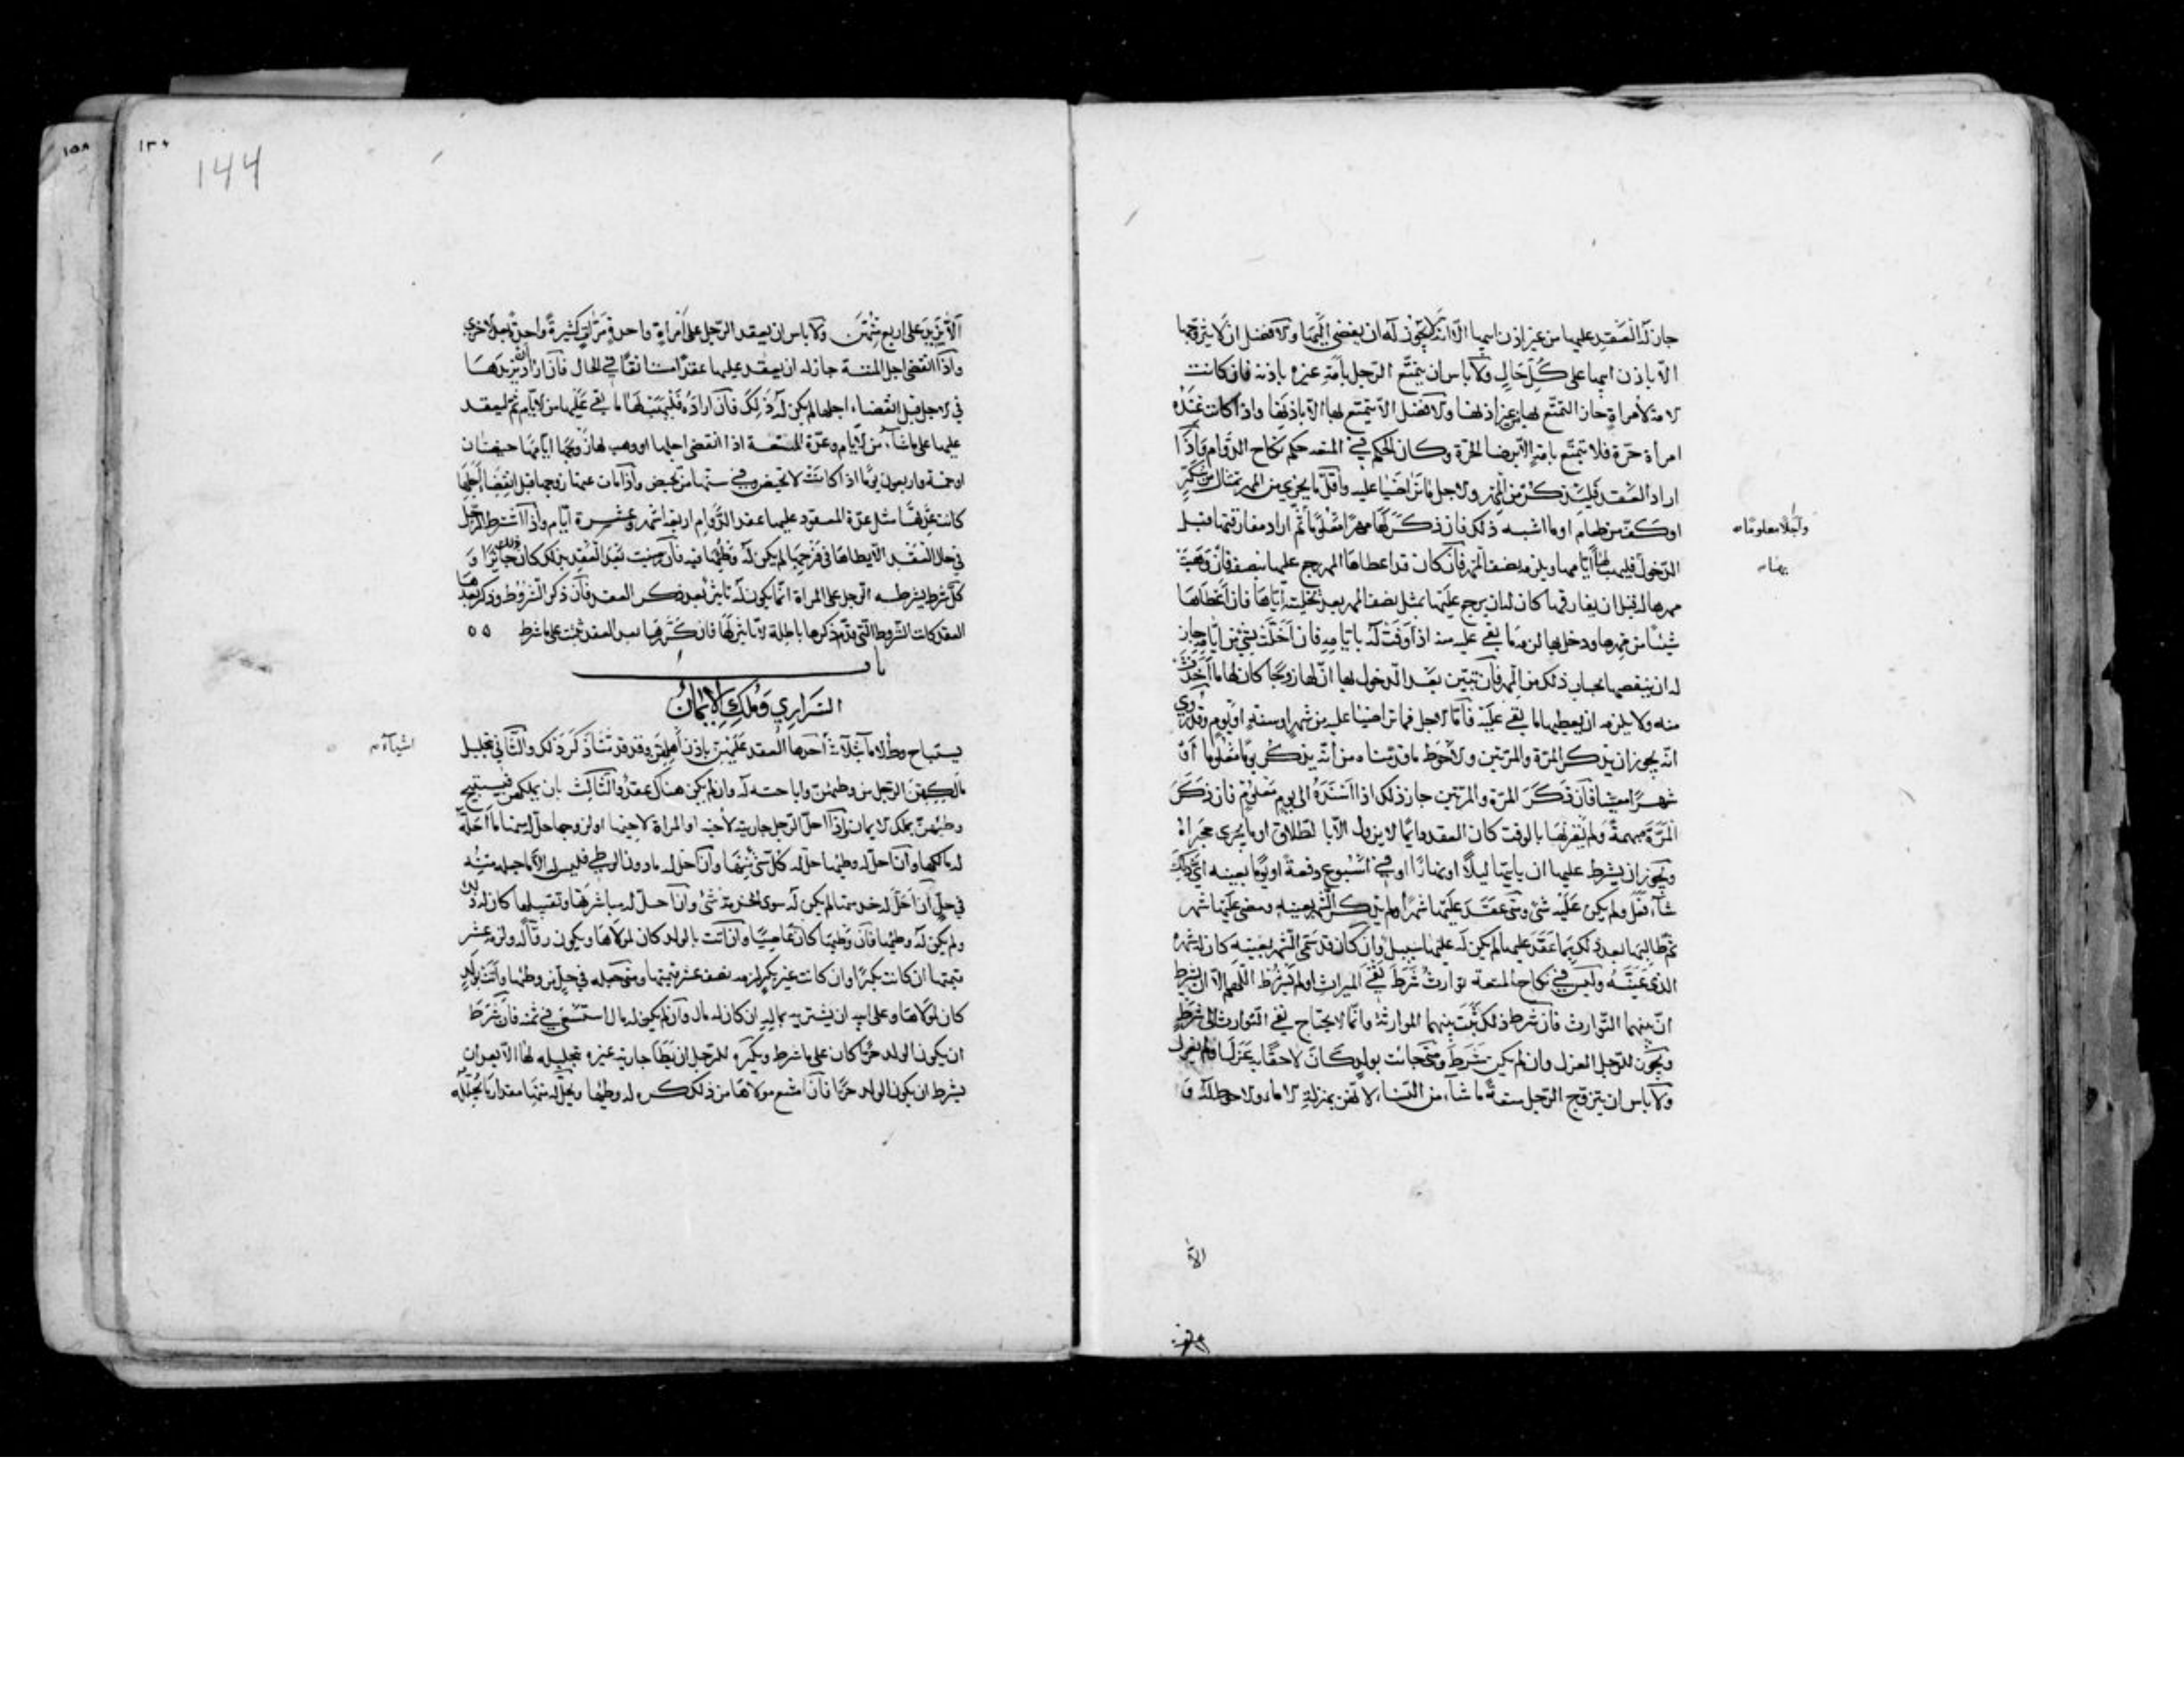 جاز له العقد عليها من غير اذن ابيها الا انه لا يجوز له ان يفضى اليها والافضل ان لا يتزوجها
الا باذن ابيها على كل حال ولا باس ان يتمتع الرجل بامة غيره باذنه فان كانت
الامة لامراة جاز التمتع لها من غير اذنها والافضل الا يتمتع بها الا باذنها واذا كانت عنده
امراة حرة فلا يتمتع بامة الا برضا الحرة وكان الحكم في المتعه حكم نكاح الدوام واذا
اراد العقد فليذكر من المهر والاجل ما تراضيا عليه واقل ما يجزي من المهر تمثال من سكر
او كف من طعام او ما اشبه ذلك فان ذكر لها مهرا معلوما ثم اراد مفارقتها قبل
واجلا معلوما
الدخول فليهب لها ايامها ويلزمه نصف المهر فان كان قد اعطاها المهر رجع عليها بنصفه فان وهبت
مهرها له قبل ان يفارقها كان له ان يرجع عليها بمثل نصف المهر بعد تخليته اياها فان اعطاها
شيئا من مهرها ودخل بها لزمه ما بقي عليه منه اذا وفت له بايامه فان اخلت بشي من ايامه جاز
له ان ينقصها بحساب ذلك من المهر فان تبين بعد الدخول بها ان لها زوجا كان لها ما اخذت
منه ولا يلزمه ان يعطيها ما بقي عليه فاما الاجل فما تراضيا عليه من شهر او سنة او يوم وقد روي
انه يجوز ان يذكر المرة والمرتين والاحوط ما قدمناه من انه يذكر يوما معلوما او
شهرا معينا فان ذكر المرة والمرتين جاز ذلك اذا اسنده الى يوم معلوم فان ذكر
المرة مبهمة ولم يقرنها بالوقت كان العقد دايما لا يزول الا بالطلاق او ما يجري مجراه
ويجوز ان يشرط عليها ان ياتيها ليلا او نهارا او في اسبوع دفعة او يوما بعينه اي ذلك
شاء فعل ولم يكن عليه شئ ومتى عقد عليها شهرا ولم يذكر الشهر بعينه ومضى عليها شهر
ثم طالبها بعد ذلك بما عقد عليها لم يكن له عليها سبيل وان كان قد سمى الشهر بعينه كان له شهره
الذي عينه وليس في نكاح المتعة توارث شرط نفي الميراث او لم يشرط اللهم الا ان يشرط
ان بينهما التوارث فان شرط ذلك ثبت بينهما الموارثة وانما لا يحتاج نفي التوارث الى شرط
ويجوز للرجل العزل وان لم يكن شرط ومتى جاءت بولد كان لاحقا به عزل او لم يعزل
ولا باس ان يتزوج الرجل متعة ما شاء من النساء لانهن بمنزلة الاماء والاحوط له و
الا
١٥٨
١٣٠
144
الا يزيد على اربع منهن ولا باس ان يعقد الرجل على امراة واحدة مرات كثيرة واحدة بعد اخرى
واذا انقضى اجل المتعة جاز له ان يعقد عليها عقدا مستانفا في الحال فان اراد ان يزيدها
في الاجل قبل انقضاء اجلها لم يكن له ذلك فان اراده فليهب لها ما بقي عليها من الايام ثم ليعقد
عليها على ما شاء من الايام وعدة المتمتعة اذا انقضى اجلها او وهب لها زوجها ايامها حيضتان
او خمسة واربعون يوما اذا كانت لا تحيض وفي سنها من تحيض واذا مات عنها زوجها قبل انقضاء اجلها
كانت عدتها مثل عدة المعقود عليها عقد الدوام اربعة اشهر وعشرة ايام واذا اشترط الرجل
في حال العقد الا يطاها في فرجها لم يكن له وطئها فيه فان رضيت بعد العقد بذلك كان ذلك جائزا و
كل شرط يشرطه الرجل على المراة انما يكون له تاثير بعد ذكر العقد فان ذكر الشروط وذكر بعدها
العقد كانت الشروط التي قدم ذكرها باطلة لا تاثير لها فان كررها بعد العقد ثبت على ما شرط
باب
السراري وملك الايمان
يستباح وطؤ الاماء بثلاث احدها العقد عليهن باذن اهلهن وقد قدمنا ذكر ذلك والثاني بتحليل
اشياء
مالكهن الرجل من وطئهن واباحته له وان لم يكن هناك عقد والثالث بان يملكهن فيستبيح
وطئهن بملك الايمان واذا احل الرجل جاريته لاخيه او المراة لاخيها او لزوجها حل له منها ما احله
له مالكها وان احل له وطئها حل له كل شئ منها وان احل له ما دون الوطي فليس له الا ما جعله منه
في حل ان احل له خدمتها لم يكن له سوى الخدمة شئ وان احل له مباشرتها وتقبيلها كان له ذلك
ولم يكن له وطئها فان وطئها كان عاصيا وان اتت بالولد كان لمولاها ويكون رقا له ولزمه عشر
قيمتها ان كانت بكرا وان كانت غير بكر لزمه نصف عشر قيمتها ومتى جعله في حل من وطئها واتت بولد
كان لمولاها وعلى ابيه ان يشتريه بماله ان كان له مال وان لم يكن له مال استسعي في ثمنه فان شرط
ان يكون الولد حرا كان على ما شرط ويكره للرجل ان يطأ جارية غيره بتحليله لها الا بعد ان
يشرط ان يكون الولد حرا فان امتنع مولاها من ذلك كره له وطئها ويحل له منها مقدار ما يحلله